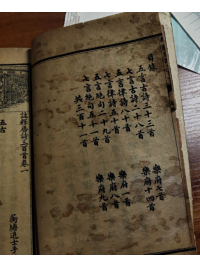 目錄
五言古詩三十三首 樂府七首
七言古詩二十八首 樂府十四首
五言律詩八十首
七言律詩五十首 樂府一首
五言絕句二十九首 樂府八首
七言絕句五十一首 樂府九首
共三百十一首
註釋唐詩三百首卷一
蘅塘退士手
五古